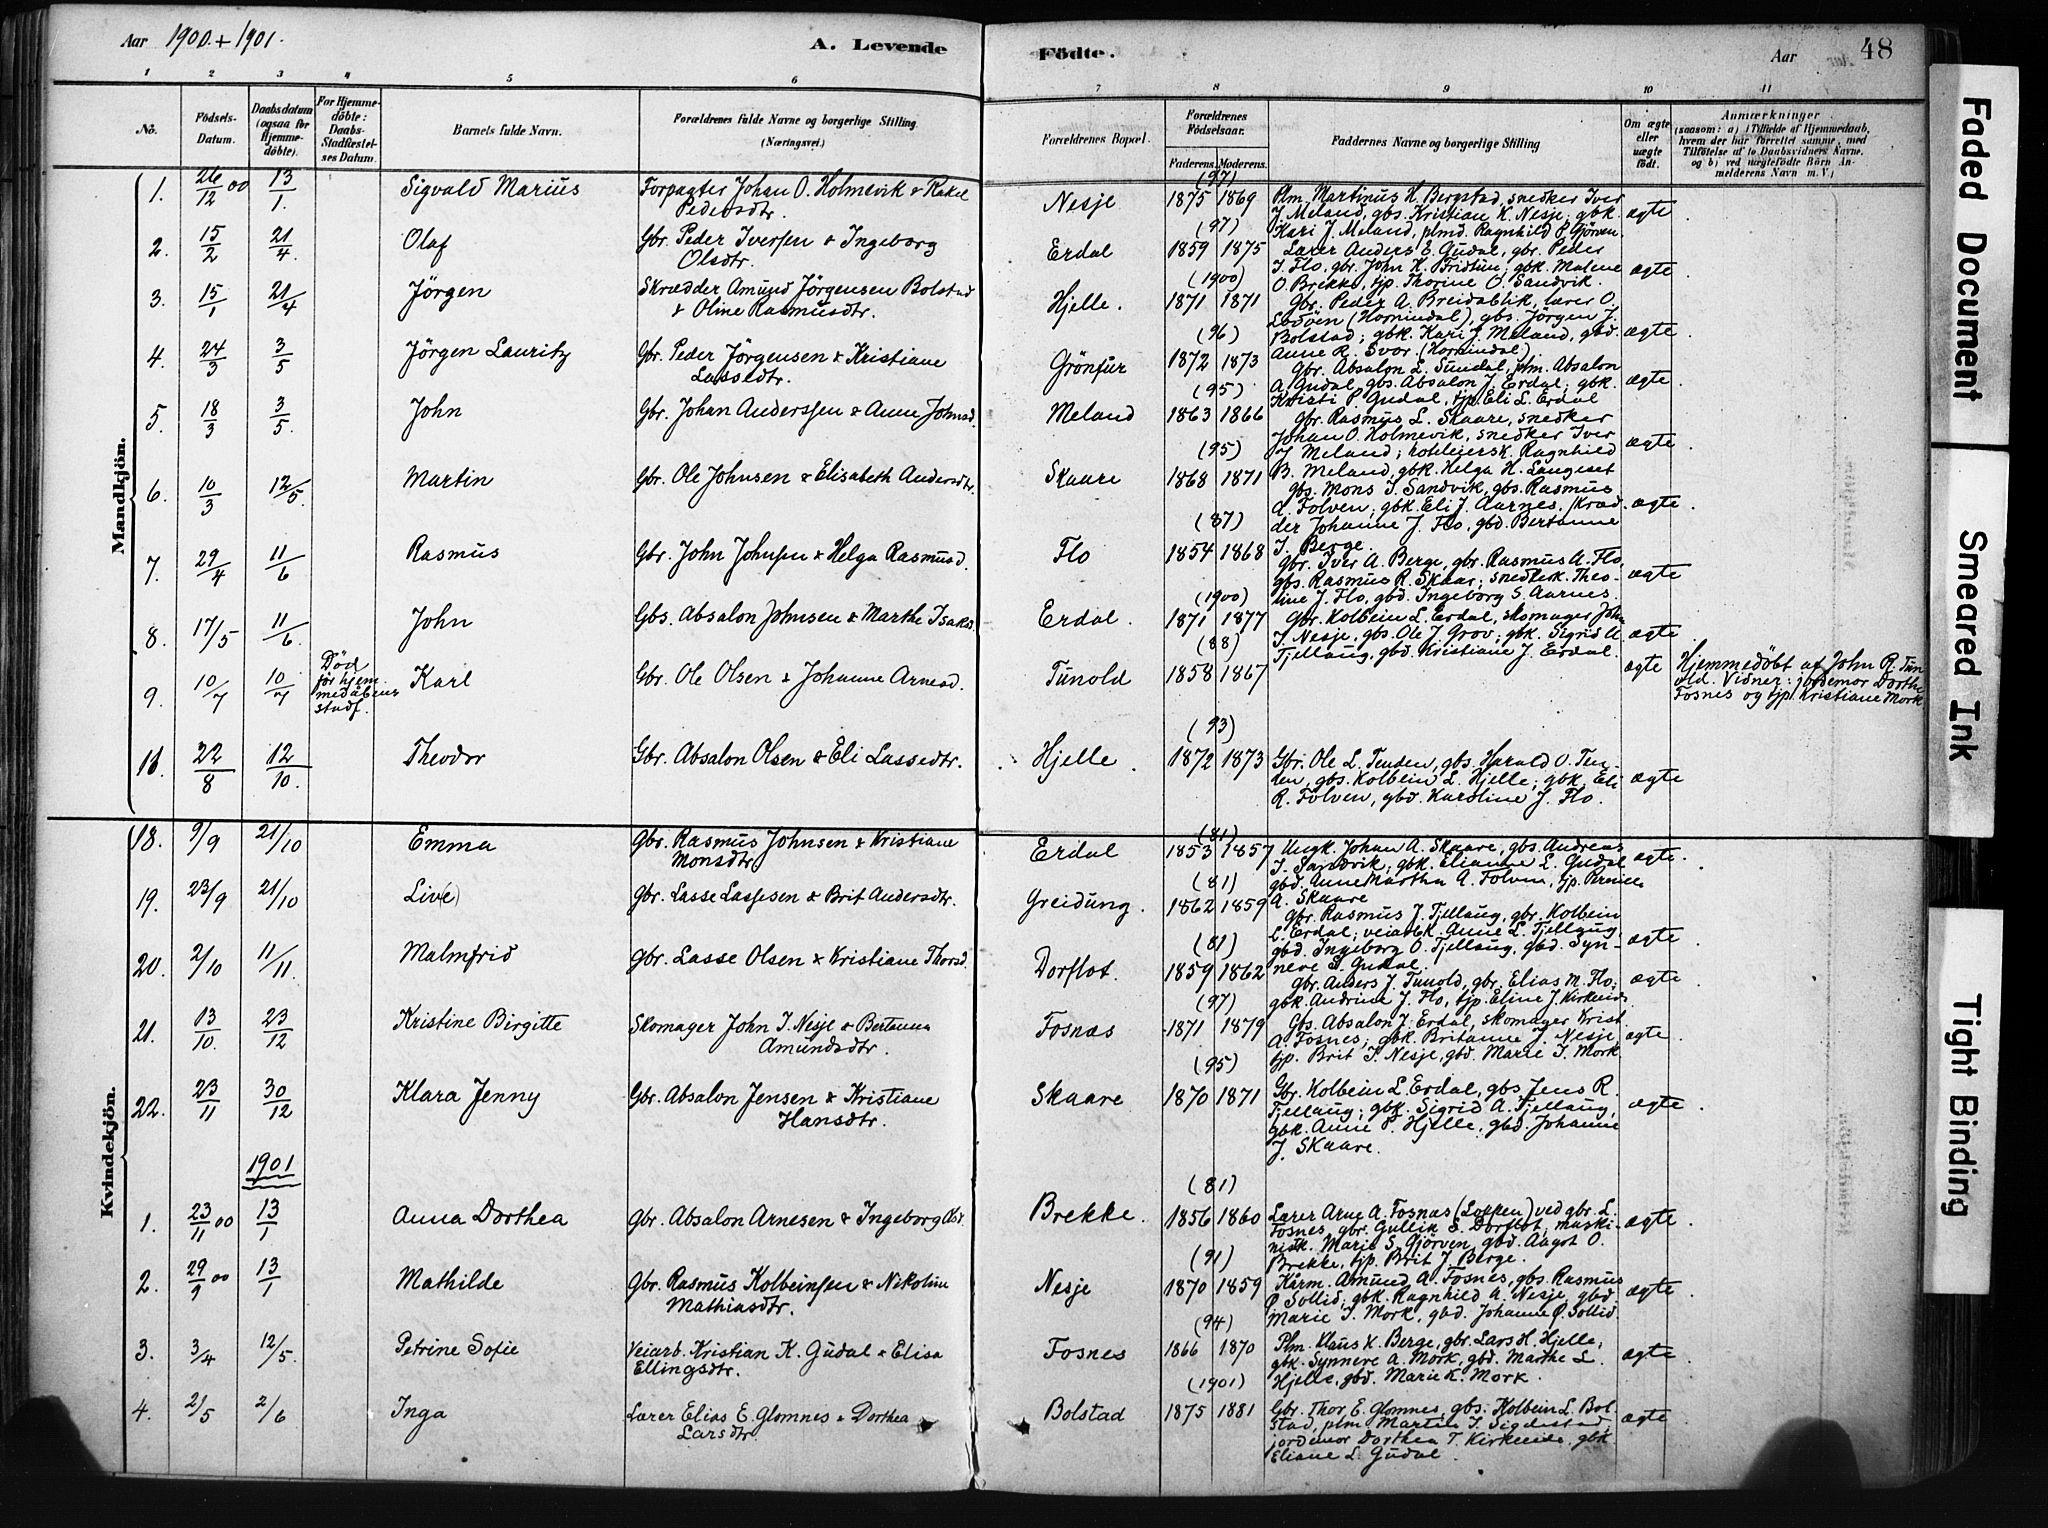 Aar 1900 + 1901.
A. Levende
Födte.
Aar
48
1 2 3 4 5 6 7 8 9 10 11
No.
Födsels-
Datum.
Daabsdatum
(ogsaa for
Hjemme-
döbte).
For Hjemme-
döbte:
Daabs-
Stadfæstel-
ses Datum.
Barnets fulde Navn.
Forældrenes fulde Navne og borgerlige Stilling
(Næringsvei.)
Forældrenes Bopæl.
Forældrenes
Födselsaar.
Faderens. Moderens.
Faddernes Navne og borgerlige Stilling
Om ægte
eller
uægte
födt.
Anmærkninger
(saasom: a) i Tilfælde af Hjemmedaab,
hvem der har forrettet samme, med
Tilföielse af to Daabsvidners Navne,
og b) ved uægtefödte Börn An-
melderens Navn m. V.)
Mandkjön.
1. 26/12 00 13/1. Sigvald Marius Forpagter Johan O. Holmevik & Rakel
Pedersdtr. Nesje (97) 1875 1869 Plm. Martinus H. Bergstad, snedker Iver
J. Meland, gbs. Kristian K. Nesje; gbk.
Kari J. Meland, plmd. Ragnhild P. Gjörven. ægte.
2. 15/2 21/4. Olaf Gbr. Peder Iversen & Ingeborg
Olsdtr. Erdal (97) 1859 1875 Lærer Anders E. Gudal, gbr. Peder
I. Flo, gbr. John K. Fristun; gbk. Malene
O. Brekke, tjp. Thorine O. Sandvik. ægte.
3. 15/1 21/4 Jörgen Skrædder Amund Jörgensen Bolstad
& Oline Rasmusdtr. Hjelle. (1900) 1871 1871 Gbr. Peder A. Breidablik, lærer O.
Lödöen (Hornindal), gbs. Jörgen J.
Bolstad; gbk. Kari J. Meland, gbd.
Anne R. Svor. (Hornindal) ægte.
4. 24/3 3/5 Jörgen Lauritz Gbr. Peder Jörgensen & Kristiane
Lassedtr. Grönfur (96) 1872 1873 Gbr. Absalon L. Sundal, plm. Absalon
A. Gudal, gbs. Absalon J. Erdal; gbk.
Kristi P. Gudal, tjp. Eli L. Erdal ægte.
5. 18/3 3/5. John Gbr. Johan Anderssen & Anne Johnsd. Meland (95) 1863 1866 Gbr. Rasmus L. Skaare, snedker
Johan O. Holmevik, snedker Iver
J. Meland; hotleiersk. Ragnhild
B. Meland, gbk. Helga H. Langeset ægte.
6. 10/3 12/5. Martin Gbr. Ole Johnsen & Elisabeth Andersdtr. Skaare (95) 1868 1871 gbs. Mons I. Sandvik, gbs. Rasmus
A. Folven; gbk. Eli J. Aarnes, skræd-
der Johanne J. Flo, gbd. Bertanne
I. Berge. ægte.
7. 29/4 11/6 Rasmus Gbr. John Johnsen & Helga Rasmusd. Flo (87) 1854 1868 Gbr. Iver A. Berge, gbr. Rasmus A. Flo,
gbs. Rasmus R. Skaar; snedkerk. Theo-
line J. Flo, gbd. Ingeborg S. Aarnes. ægte
8. 17/5 11/6. John Gbs. Absalon Johnsen & Marthe Isaksd. Erdal. (1900) 1871 1877 Gbr. Kolbein L. Erdal, skomager John
I. Nesje, gbs. Ole J. Grov; gbk. Sigrid A.
Tjellaug, gbd. Kristiane J. Erdal. ægte.
9. 10/7 10/7 Död
för hjem
medåbens
stadf. Karl Gbr. Ole Olsen & Johanne Arnesd. Tunold (88) 1858 1867 ægte Hjemmedöbt af John R. Tun
old. Vidner: jordemor Dorthe
Fosnes og tjp. Kristiane Mork
22/8 12/10. Theodor Gbr. Absalon Olsen & Eli Lassedtr. Hjelle. (93) 1872 1873 Gbr. Ole L. Tenden, gbs. Harald O. Ten-
den, gbs. Kolbein L. Hjelle; gbk. Eli
R. Folven, gbd. Karoline J. Flo. ægte
Kvindekjön.
18. 9/9 21/10 Emma Gbr. Rasmus Johnsen & Kristiane
Monsdtr Erdal (81) 1853 1857 Ungk. Johan A. Skaare, gbs. Andreas
I. Sandvik; gbk. Elianne L. Gudal
gbd. Anne Martha A. Folven, tjp. Pernille
A. Skaare ægte.
19. 23/9 21/10 Liv(e) Gbr. Lasse Lassesen & Brit Andersdtr. Greidung. (81) 1862 1859 Gbr. Rasmus J. Tjellaug, gbr. Kolbein
L. Erdal; veiarbk. Anne L. Tjellaug
gbd. Ingeborg O. Tjellaug, gbd. Syn-
neve S. Gudal. ægte
20. 2/10 11/11. Malmfrid Gbr. Lasse Olsen & Kristiane Thorsd. Dorflot. (81) 1859 1862 Gbr. Anders J. Tunold, gbr. Elias M. Flo;
gbk. Andrine J. Flo, tjp. Eline J. Kirkeide ægte
21. 13/10. 23/12 Kristine Birgitte Skomager John I. Nesje & Bertanna
Amundsdtr. Fosnæs (97) 1871 1879 Gbs. Absalon J. Erdal, skomager Krist.
A. Fosnes; gbk. Britanne J. Nesje,
tjp. Brit I. Nesje, gbd. Marie I. Mork ægte.
22. 23/11 30/12 Klara Jenny Gbr. Absalon Jensen & Kristiane
Hansdtr. Skaare (95) 1870 1871 Gbr. Kolbein L. Erdal, gbs. Jens R.
Tjellaug; gbk. Sigrid A. Tjellaug,
gbk. Anne P. Hjelle, gbd. Johanne
J. Skaare. ægte.
1901
1. 23/11 00 13/1 Anna Dorthea Gbr. Absalon Arnesen & Ingeborg Olsd. Brekke. (81) 1856 1860 Lærer Arne A. Fosnæs (Lofken) ved gbr. L.
Fosnes, gbr. Gullik S. Dorflot; maski-
nistk. Marie S. Gjörven, gbd. Aagot O.
Brekke, tjp. Brit J. Berge. ægte.
2. 29/9 00 13/1 Mathilde Gbr. Rasmus Kolbeinsen & Nikoline
Mathiasdtr. Nesje (91) 1870 1859 Kårm. Amund A. Fosnes, gbs. Rasmus
P. Sollid; gbk. Ragnhild A. Nesje, gbd.
Marie I. Mork, gbd. Johanne P. Sollid. ægte.
3. 3/4 12/5. Petrine Sofie Veiarb. Kristian K. Gudal & Elisa
Ellingsdtr. Fosnes (94) 1866 1870 Plm. Klaus K. Berge, gbr. Lars H. Hjelle;
gbk. Synneve A. Mork, gbd. Marthe L.
Hjelle, gbd. Marie K. Mork. ægte.
4. 2/5 2/6 Inga Lærer Elias E. Glomnes & Dorthea
Larsdtr. Bolstad (1901) 1875 1881 Gbr. Thor E. Glomnes, gbs. Kolbein L. Bol-
stad, plm. Martin I. Sigdestad,
jordemor Dorthea T. Kirkeide, gbk.
Eliane L. Gudal. ægte.
Faded Document
Smeared Ink
Tight Binding